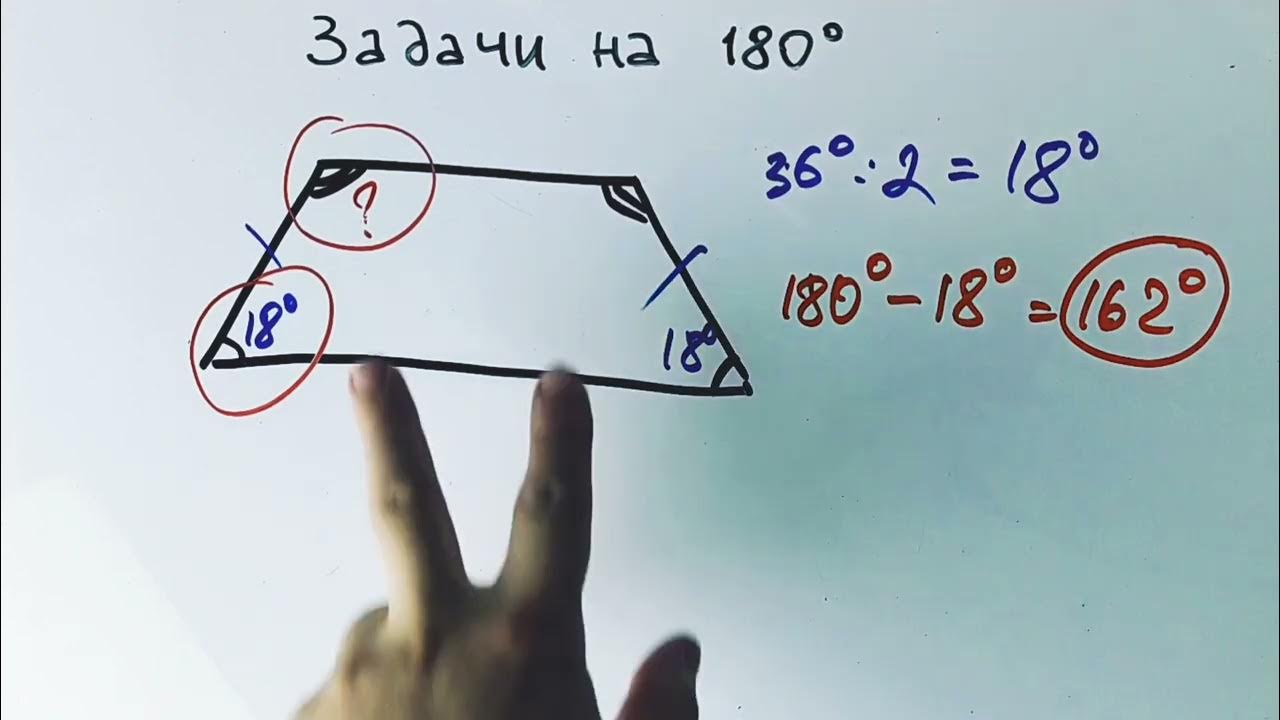 Задачи на 180°
36° : 2 = 18°
?
180° - 18° = 162°
18°
18°